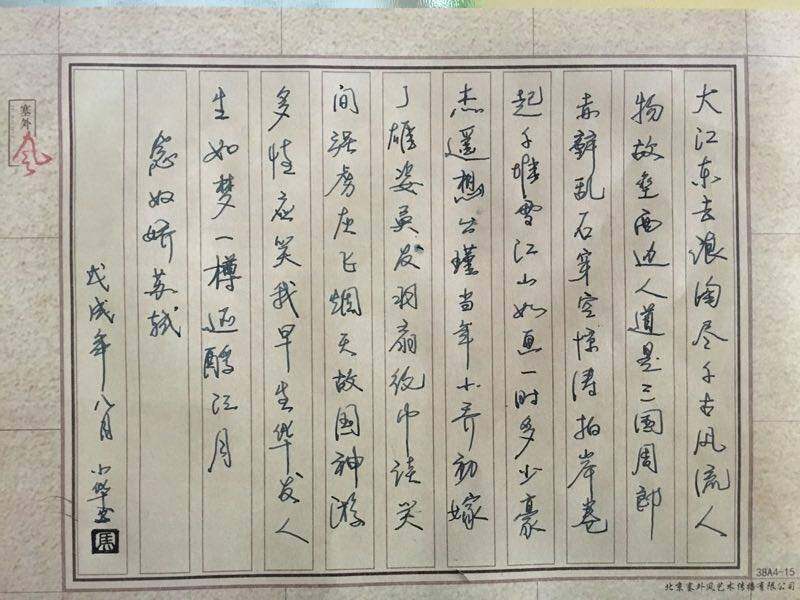 大江东去浪淘尽千古风流人
物故垒西边人道是三国周郎
赤壁乱石穿空惊涛拍岸卷
起千堆雪江山如画一时多少豪
杰遥想公瑾当年小乔初嫁
了雄姿英发羽扇纶巾谈笑
间强虏灰飞烟灭故国神游
多情应笑我早生华发人
生如梦一樽还酹江月
念奴娇苏轼
戊戌年八月 小华书
馬
塞外
风
38A4-15
北京塞外风艺术传播有限公司